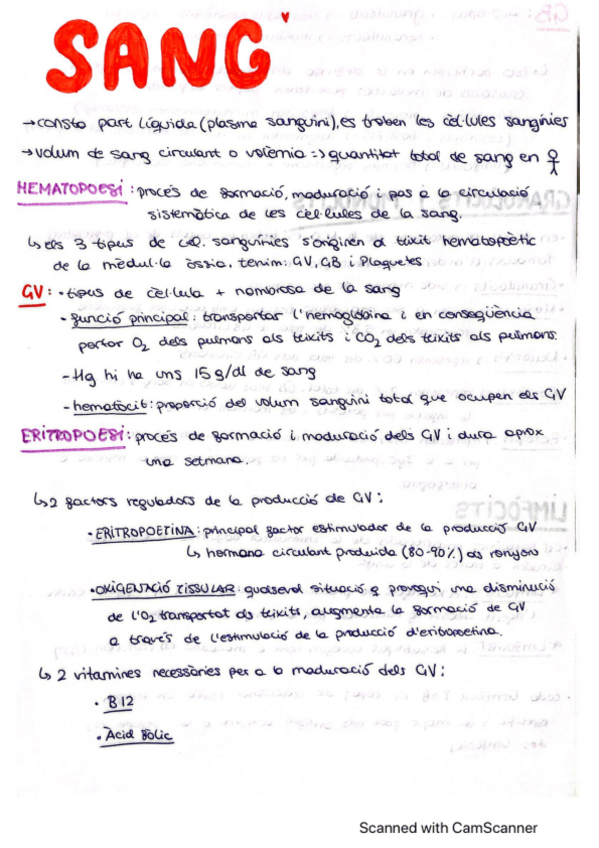 SANG
→ consta part líquida (plasma sanguini), es troben les cèl·lules sangínies
→ volum de sang circulant o volèmia => quantitat total de sang en
HEMATOPOESI: procés de formació, maduració i pas a la circulació
sistemàtica de les cèl·lules de la sang.
↳ els 3 tipus de cèl. sanguínies s'originen al teixit hematopoètic
de la mèdul·la òssia. tenim: GV, GB i Plaquetes
GV: · tipus de cèl·lula + nombrosa de la sang
· funció principal: transportar l'hemoglobina i en conseqüència
portar O2 dels pulmons als teixits i CO2 dels teixits als pulmons.
- Hg hi ha uns 15 g/dl de sang
- hematocit: proporció del volum sanguini total que ocupen els GV
ERITROPOESI: procés de formació i maduració dels GV i dura aprox
una setmana.
↳ 2 factors reguladors de la producció de GV:
· ERITROPOETINA: principal factor estimulador de la producció GV
↳ hormona circulant produïda (80-90%) als ronyons
· OXIGENACIÓ TISSULAR: qualsevol situació q provoqui una disminució
de l'O2 transportat als teixits, augmenta la formació de GV
a través de l'estimulació de la producció d'eritropoetina.
↳ 2 vitamines necessàries per a la maduració dels GV:
· B12
· Acid fòlic
Scanned with CamScanner